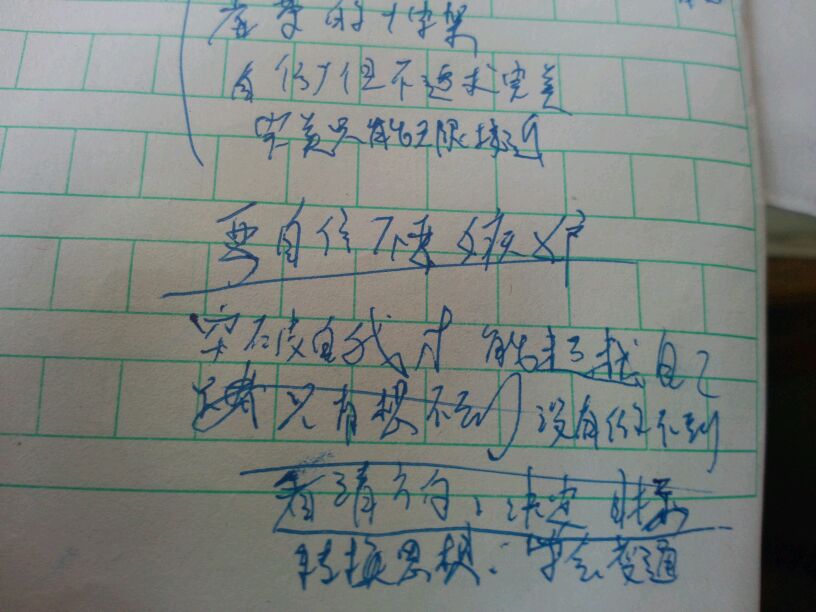 的
自信但不追求完美
完美只能无限接近
要自信不要
突破自我才能 自己
只有想不到 没有做不到
看清方向、决定
转换思想、学会变通